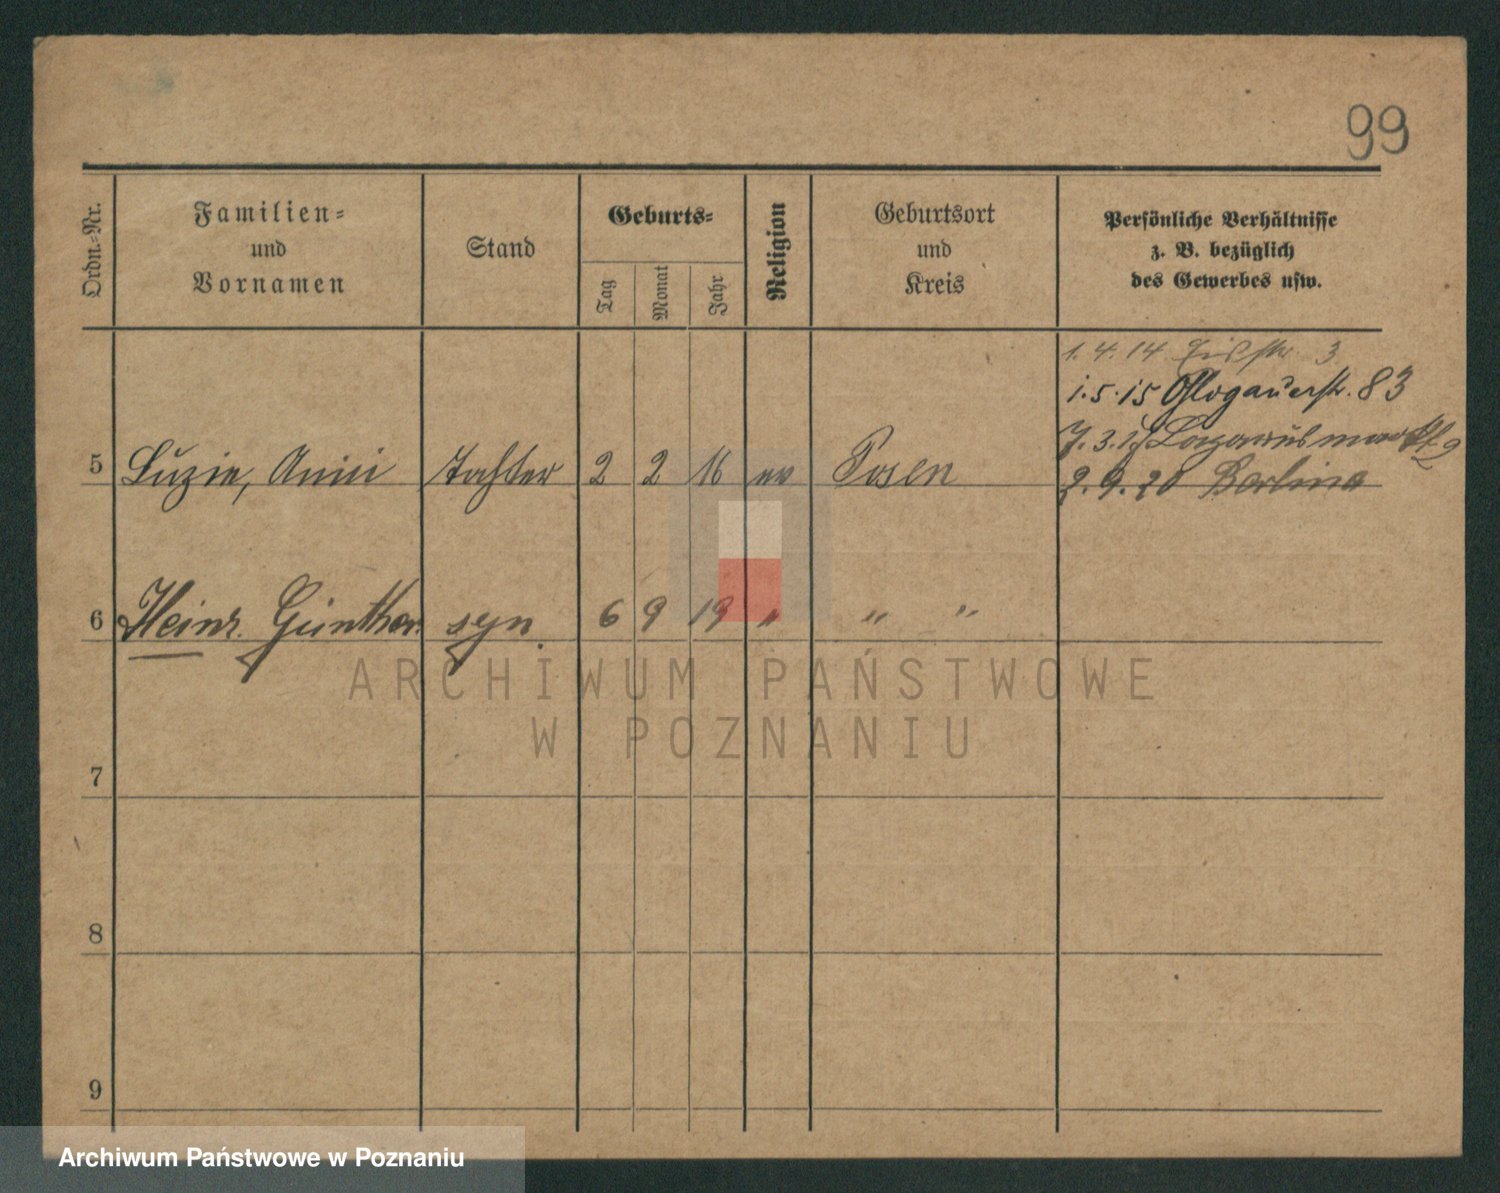 99
Ordn.-Nr.
Familien-
und
Vornamen
Stand
Geburts-
Tag
Monat
Jahr
Religion
Geburtsort
und
Kreis
Persönliche Verhältnisse
z. B. bezüglich
des Gewerbes usw.
1.4.14 3
1.5.15 Glogauerstr. 83
7.3. Lazarusmarkt 2
2.9.20 Berlin
5 Luzie, Anni Tochter 2 2 16 ev Posen
6 Heinz. Günther. syn. 6 9 19 " " "
7
8
9
ARCHIWUM PAŃSTWOWE
W POZNANIU
Archiwum Państwowe w Poznaniu